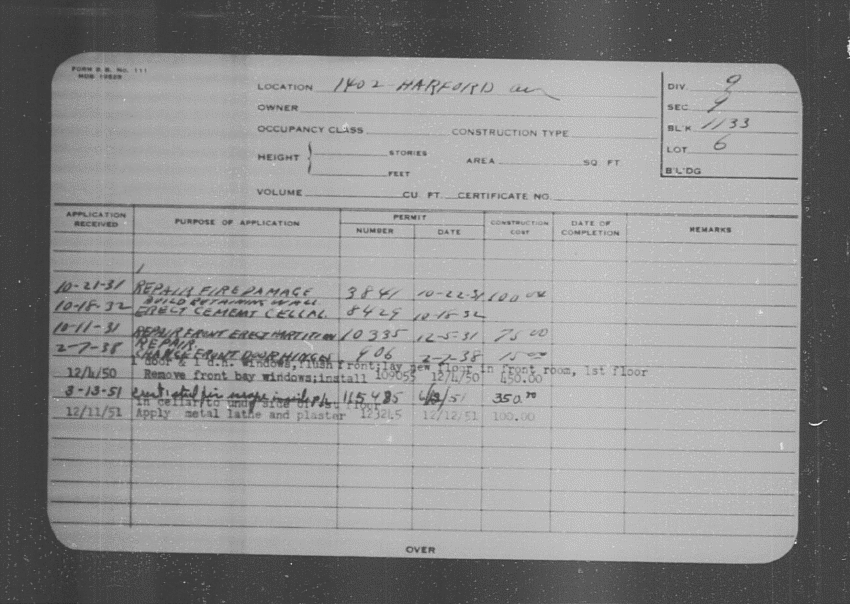 FORM B. B. No. 111
MDB 19829
LOCATION 1402 HARFORD
OWNER
OCCUPANCY CLASS CONSTRUCTION TYPE
HEIGHT STORIES
FEET
AREA SQ FT.
VOLUME CU FT. CERTIFICATE NO.
DIV. 9
SEC 9
BL'K 1133
LOT 6
B'L'DG
APPLICATION RECEIVED PURPOSE OF APPLICATION PERMIT NUMBER DATE CONSTRUCTION COST DATE OF COMPLETION REMARKS
10-21-31 REPAIR FIRE DAMAGE 3841 10-22-31 100
BUILD RETAINING WALL
10-18-32 ERECT CEMENT CELLAR 8429 10-18-32
10-11-31 REPAIR FRONT ERECT PARTITION 10335 12-5-31 75 00
REPAIR
2-7-38 CHANGE FRONT DOOR HINGES 906 2-7-38 15
1 door & 1 d.h. windows, flush front; lay new floor in front room, 1st floor
12/4/50 Remove front bay windows; install 109055 12/4/50 450.00
3-13-51 115485 350.
in cellar to under side of 1st floor
12/11/51 Apply metal lathe and plaster 123245 12/12/51 100.00
OVER